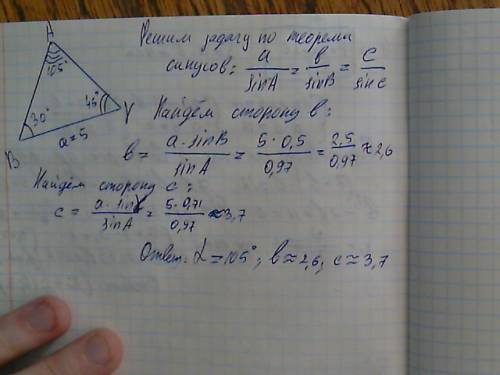 A
105°
30°
45°
γ
a=5
B
Решим задачу по теореме
синусов: a/sinA = b/sinB = c/sinc
Найдём сторону b:
b = a·sinB/sinA = 5·0,5/0,97 = 2,5/0,97 ≈ 2,6
Найдём сторону c:
c = a·sinγ/sinA = 5·0,71/0,97 ≈ 3,7
Ответ: α = 105°; b ≈ 2,6; c ≈ 3,7